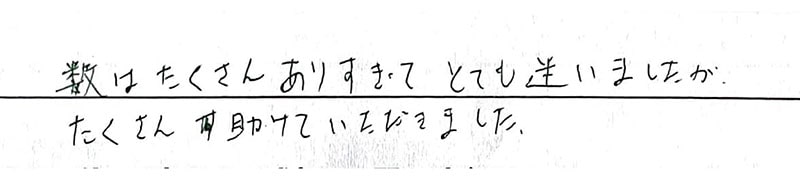 数はたくさんありすぎて とても迷いましたが、
たくさん 助けていただきました。